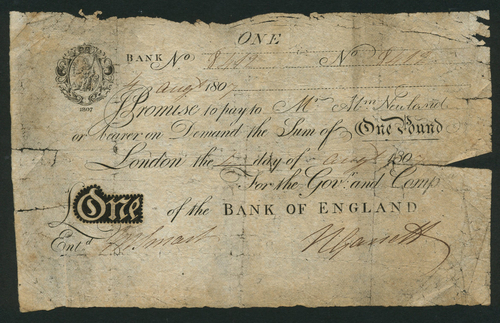 ONE
BANK No 8442 No 8442
Augt 1807
I Promise to pay to Mr. Abm. Newland
1807
or Bearer on Demand the Sum of One Pound
London the day of Augt 180
For the Govr. and Comp.
£One of the BANK OF ENGLAND
Entd.